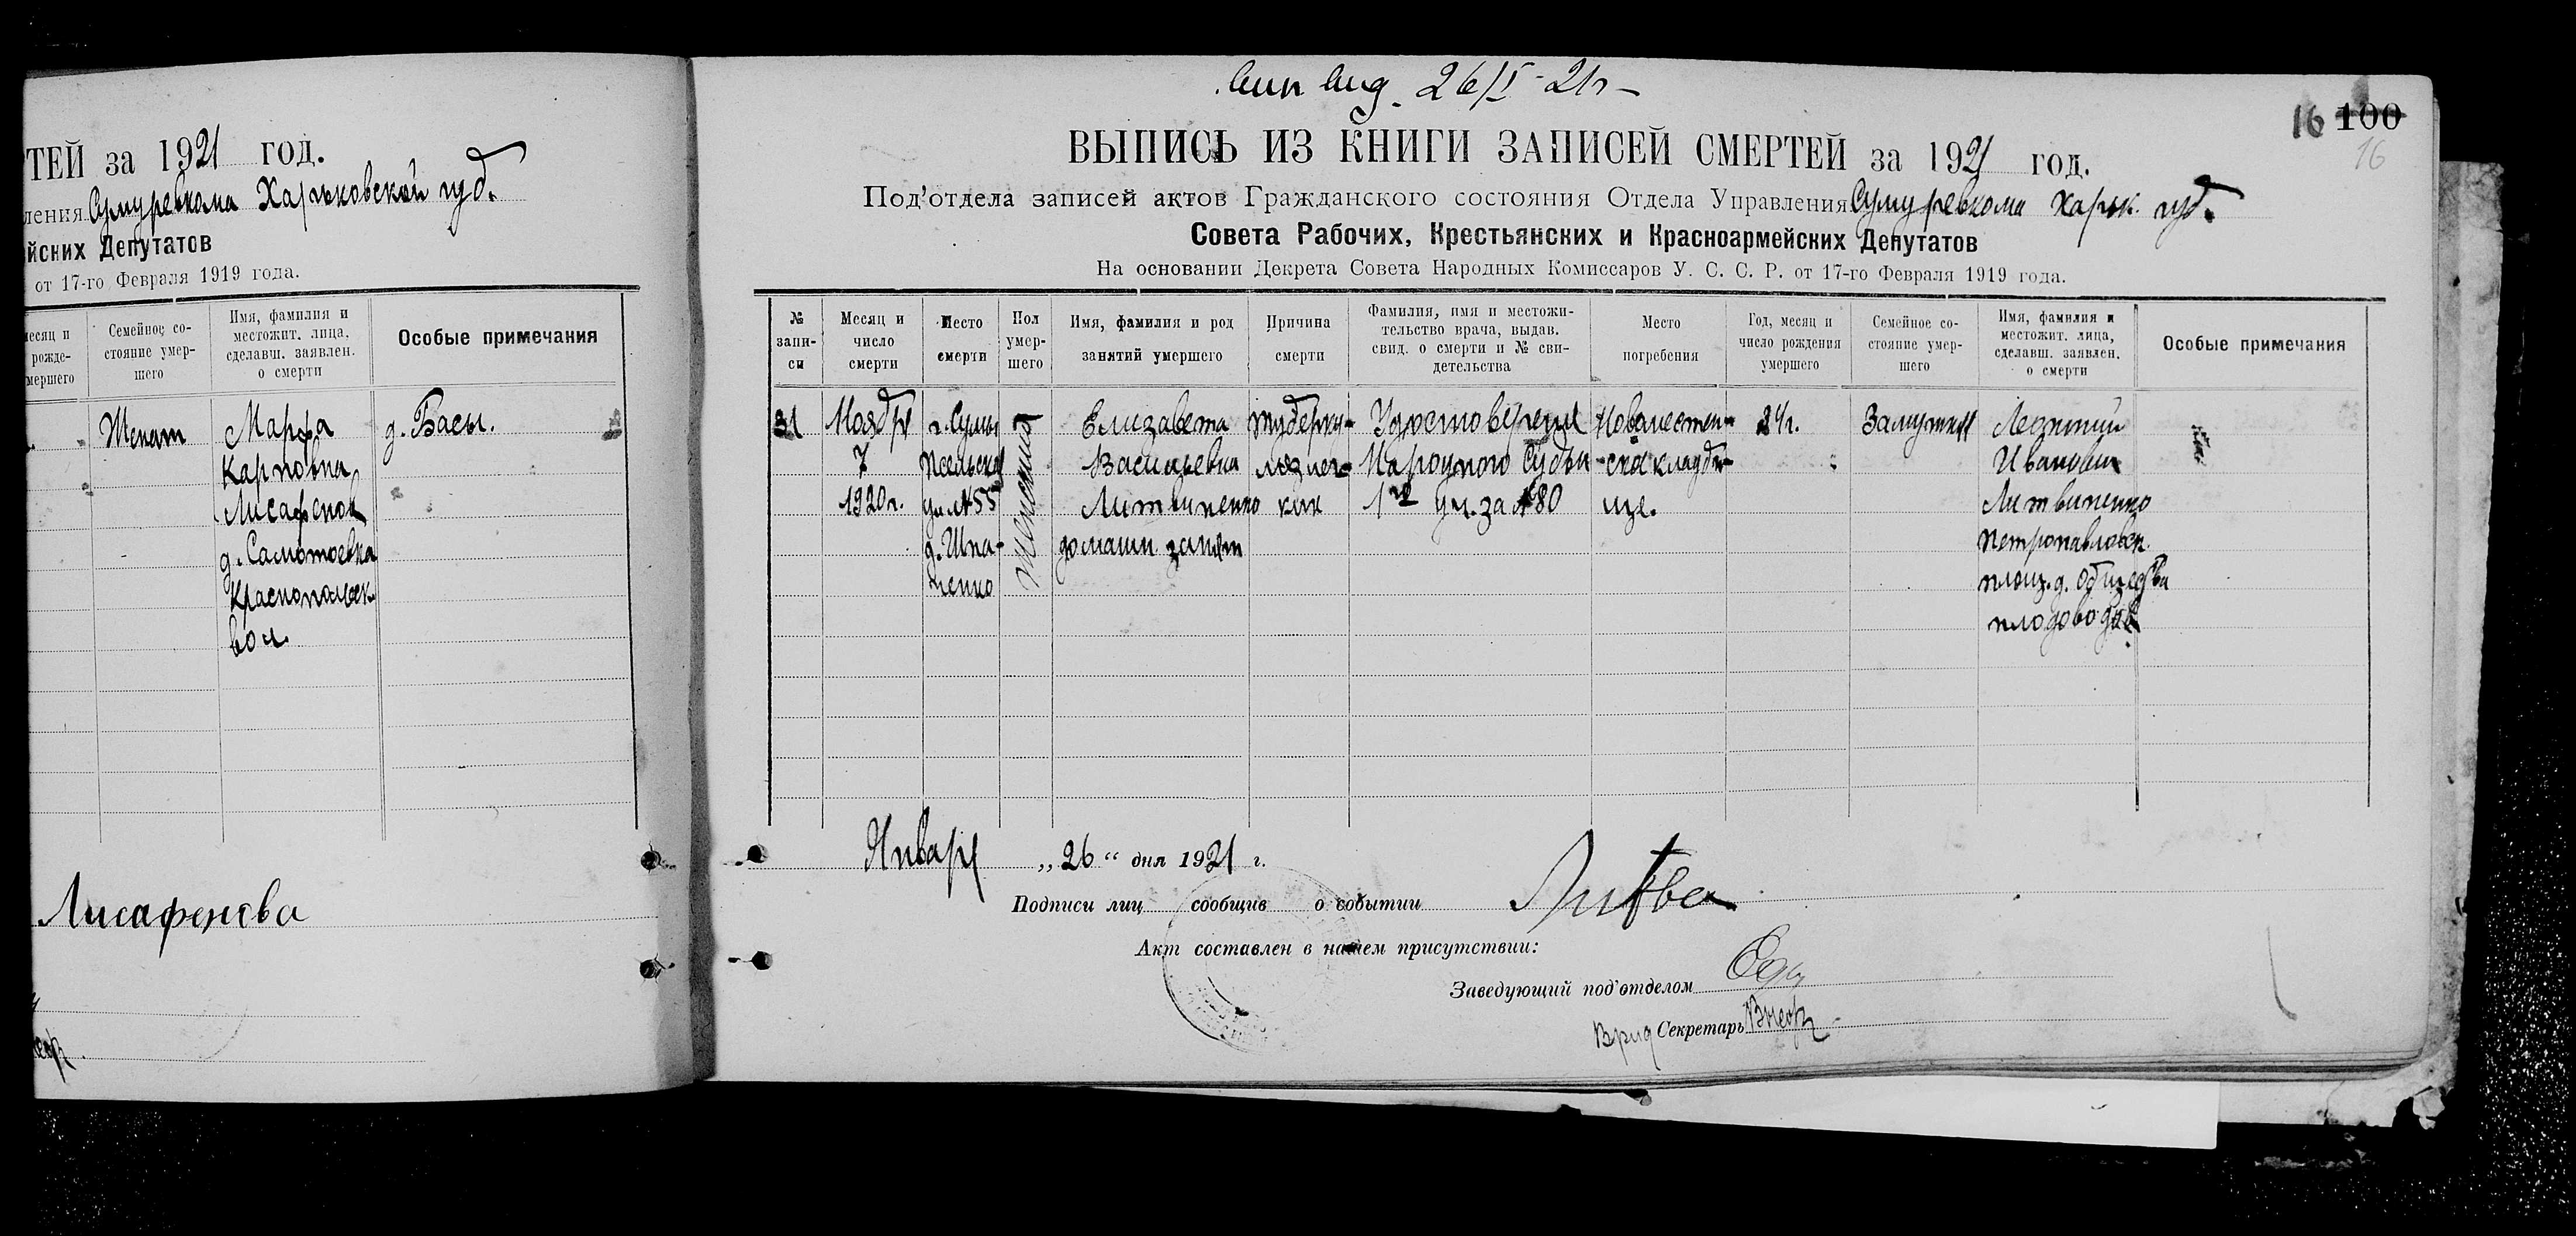 ТЕЙ за 1921 год.
ления Сумуревкома Харьковской губ.
йских Депутатов
от 17-го Февраля 1919 года.
месяц и
рожде-
мершего
Семейное со-
стояние умер-
шего
Имя, фамилия и
местожит. лица,
сделавш. заявлен.
о смерти
Особые примечания
Женат
Марфа
Карповна
д. Самотоевка
Краснопольск.
вол.
д. Басы.
Лисафенова
26/I-21г
16 100
16
ВЫПИСЬ ИЗ КНИГИ ЗАПИСЕЙ СМЕРТЕЙ за 1921 год.
Под'отдела записей актов Гражданского состояния Отдела Управления Сумуревкома Харьк. губ.
Совета Рабочих, Крестьянских и Красноармейских Депутатов
На основании Декрета Совета Народных Комиссаров У. С. С. Р. от 17-го Февраля 1919 года.
№
запи-
си
Месяц и
число
смерти
Место
смерти
Пол
умер-
шего
Имя, фамилия и род
занятий умершего
Причина
смерти
Фамилия, имя и местожи-
тельство врача, выдав.
свид. о смерти и № сви-
детельства
Место
погребения
Год, месяц и
число рождения
умершего
Семейное со-
стояние умер-
шего
Имя, фамилия и
местожит. лица,
сделавш. заявлен.
о смерти
Особые примечания
31
Ноября
7
1920г.
г. Сумы
Псельская
ул. №55
д. Шпа-
ченко
Женский
Елизавета
Васильевна
Литвиненко
домашн. занят
туберку-
лез лег-
ких
Удостоверение
Народного Судьи
1го уч. за №80
Новоместен-
ское кладби-
ще.
24г.
Замужняя
Леонтий
Иванович
Литвиненко
Петропавловск.
площ. д. Общества
плодоводов
Января „26“ дня 1921 г.
Подписи лиц сообщив о событии Литве
Акт составлен в нашем присутствии:
Заведующий под'отделом
Врид Секретарь